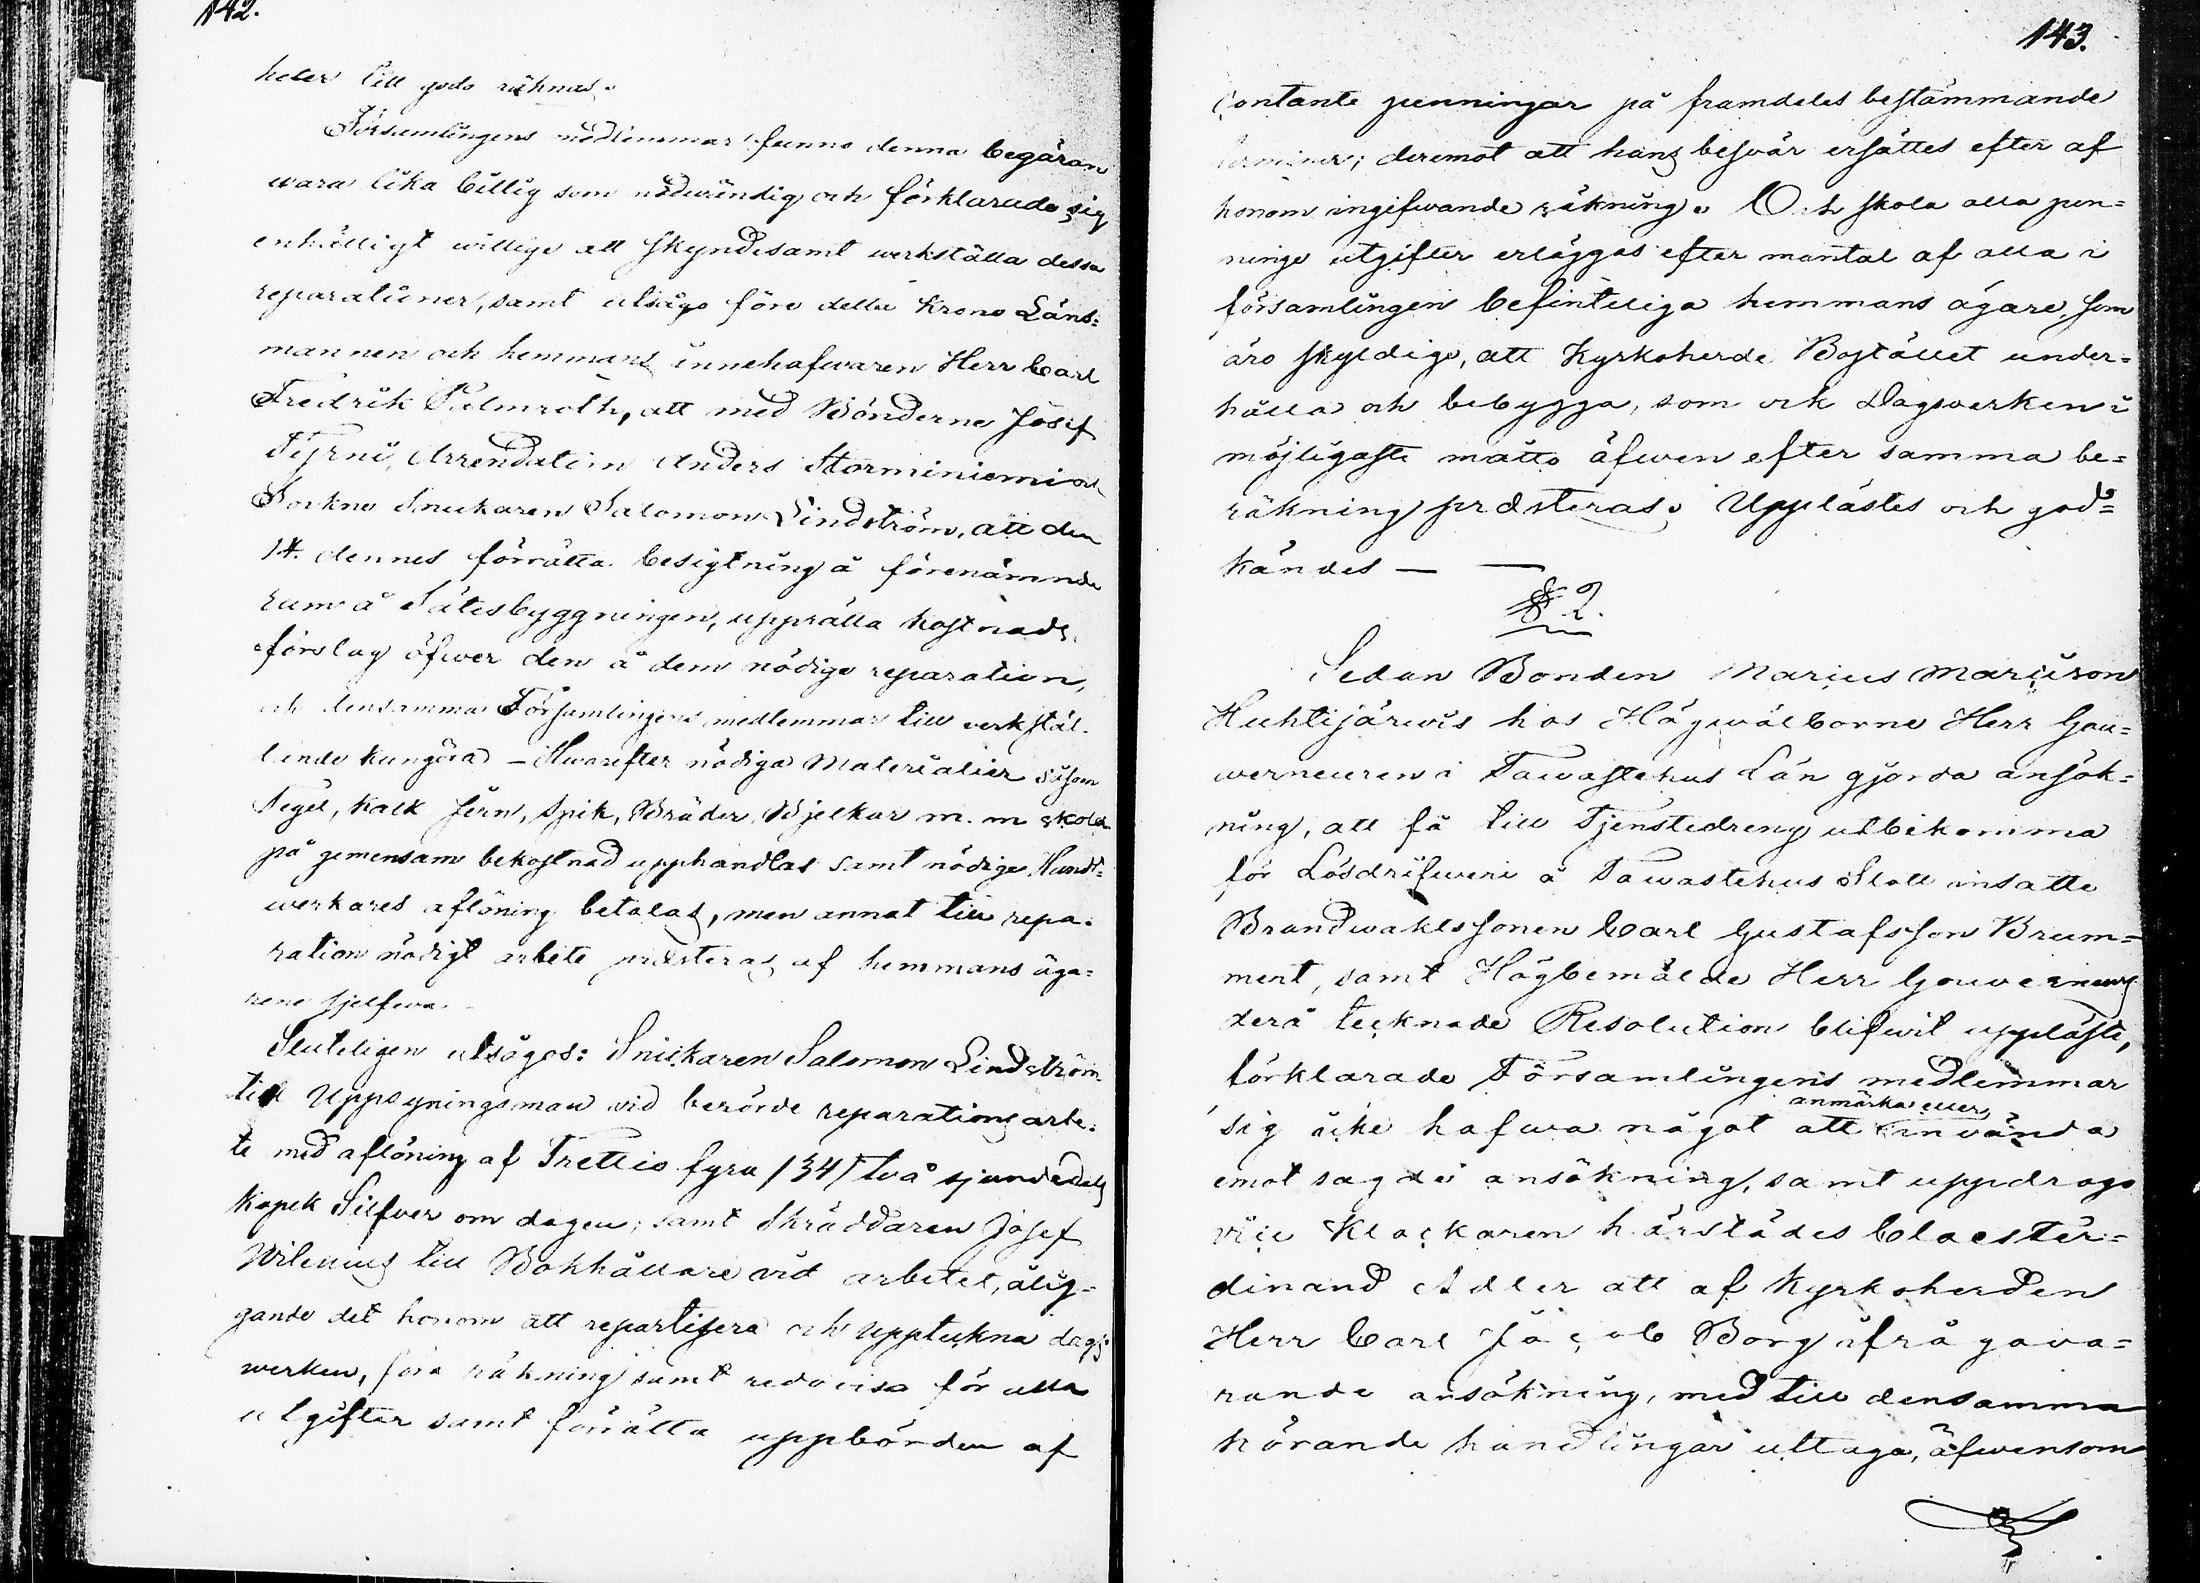 142.
heler till godo räknas.
Församlingens medlemmar funno denna begäran
wara lika billig som nödwändig och förklarade sig
enhälligt willige att skyndesamt werkställa dessa
reparationer, samt utsågo före detta Krono Läns=
mannen och hemmans innehafwaren Herr Carl
Fredrik Palmroth, att med Bönderne Josef
Tyrni, Arrendatorn Anders Storminiemi och
Sockne Snickaren Salomon Lindström, att den
14. dennes förrätta besigtning å förenämnde
rum å Sätesbyggningen, upprätta kostnads
förslag öfwer den å dem nödige reparation,
och densamma Församlingens medlemmar till verkstäl-
lande kungöra – Hwarefter nödiga Materialier såsom
Tegel, Kalk Jern, Spik, Bräder, Bjelkar m. m skola
på gemensam bekostnad upphandlas samt nödige Handt=
werkares aflöning betalas, men annat till repa-
ration nödigt arbete præsteras af hemmans äga=
rene sjelfwa.
Sluteligen utsågos: Snickaren Salomon Lindström
till Uppsyningsman vid berörde reparations arbe-
te med aflöning af Trettio fyra /34/ två sjundedels
Kopek Silfver om dagen; samt Skräddaren Josef
Wilenius till Bokhållare vid arbetet, ålig-
gande det honom att repartisera och uppteckna dags
werken, föra räkning samt redovisa för alla
utgifter samt förrätta uppbörden af
143.
Contante penningar på framdeles bestämmande
terminer; deremot att hans besvär ersättes efter af
honom ingifwande räkning. Och skola alla pen=
ninge utgifter erläggas efter mantal af alla i
församlingen befinteliga hemmans ägare, som
äro skyldige, att Kyrkoherde Bostället under=
hålla och bebygga, som ock Dagswerken i
möjligaste måtto äfwen efter samma be=
räkning præsteras. Upplästes och god=
kändes — —
§ 2.
Sedan Bonden Marius Mariuson
Huhtijärwis hos Högwälborne Herr Gou=
werneuren i Tawastehus Län gjorda ansök=
ning, att få till Tjenstedreng utbekomma
för Lösdrifweri å Tawastehus Slott insatte
Brandwaktssonen Carl Gustafsson Brum=
ment, samt Högbemälde Herr Gouverneurs
derå tecknade Resolution blifwit uppläste,
förklarade Församlingens medlemmar
anmärka eller
sig icke hafwa något att invända
emot sagde ansökning, samt uppdrogo
vice Klockaren härstädes Claes Fer=
dinand Adler att af Kyrkoherden
Herr Carl Jacob Borg ifrågava=
rande ansökning, med till densamma
hörande handlingar uttaga, äfwensom